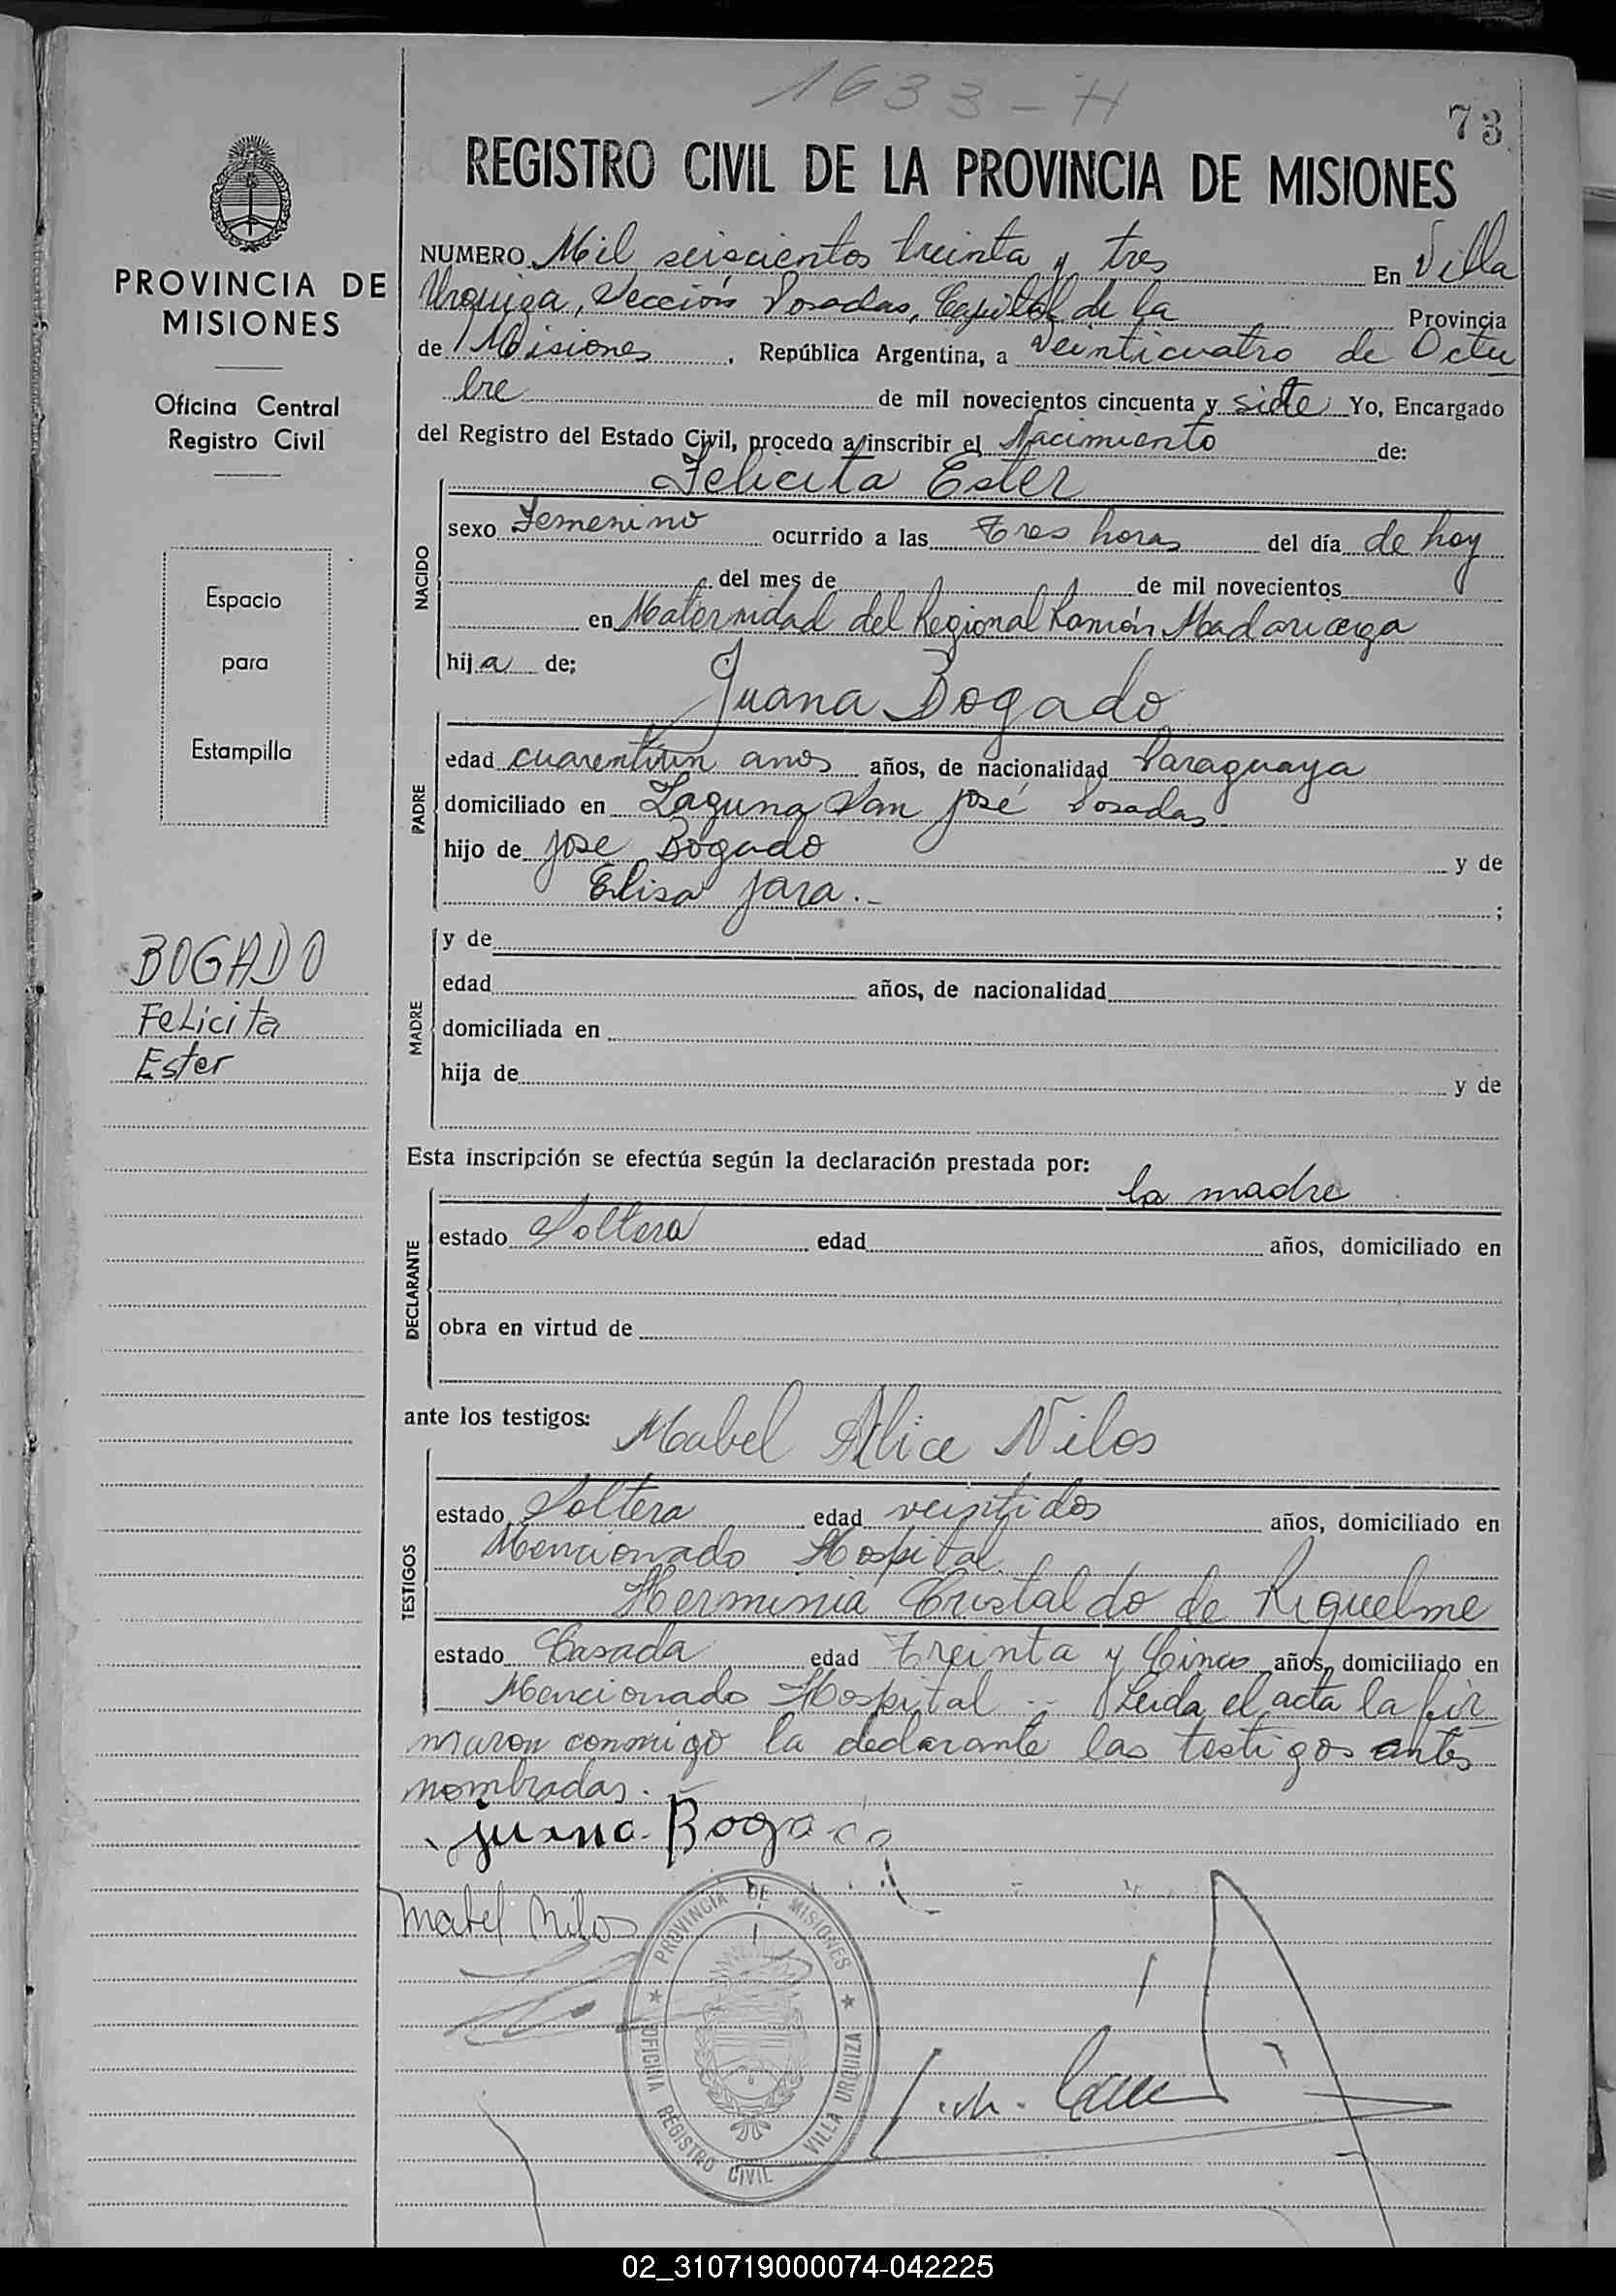 1633-H
73
REGISTRO CIVIL DE LA PROVINCIA DE MISIONES
PROVINCIA DE
MISIONES
Oficina Central
Registro Civil
Espacio
para
Estampilla
BOGADO
Felicita
Ester
NUMERO Mil seiscientos treinta y tres En Villa
Urquiza, Sección Posadas, Capital de la Provincia
de Misiones, República Argentina, a veinticuatro de Octu
bre de mil novecientos cincuenta y siete Yo, Encargado
del Registro del Estado Civil, procedo a inscribir el Nacimiento de:
Felicita Ester
NACIDO
sexo Femenino ocurrido a las tres horas del día de hoy
del mes de de mil novecientos
en Maternidad del Regional Ramón Madariaga
hija de:
Juana Bogado
PADRE
edad cuarentiun anos años, de nacionalidad Paraguaya
domiciliado en Laguna San José Posadas
hijo de José Bogado y de
Elisa Jara.-;
MADRE
y de
edad años, de nacionalidad
domiciliada en
hija de y de
Esta inscripción se efectúa según la declaración prestada por:
la madre
DECLARANTE
estado Soltera edad años, domiciliado en
obra en virtud de
ante los testigos:
Mabel Alice Nilos
TESTIGOS
estado Soltera edad veintidos años, domiciliado en
Mencionado Hospital.
Herminia Cristaldo de Riquelme
estado Casada edad Treinta y Cinco años, domiciliado en
Mencionado Hospital.- Leida el acta la fir
maron conmigo la declarante las testigos antes
nombradas.
juana Bogado
Mabel Nilos
PROVINCIA DE MISIONES
OFICINA REGISTRO CIVIL VILLA URQUIZA
02_310719000074-042225